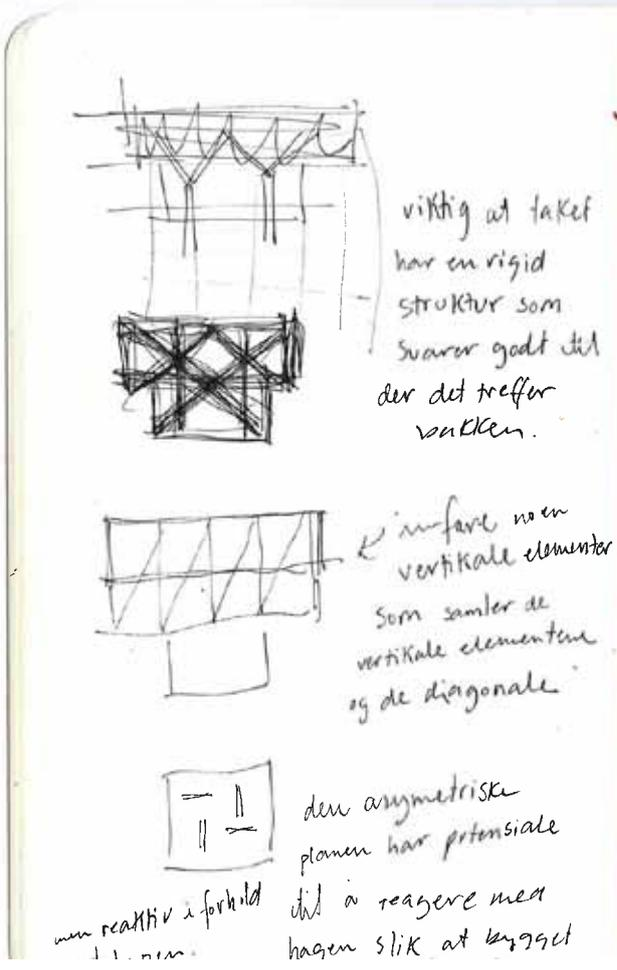 viktig at taket
har en rigid
struktur som
svarer godt til
der det treffer
bakken.
innføre noen
vertikale elementer
som samler de
vertikale elementene
og de diagonale
den asymetriske
planen har potensiale
til å reagere med
hagen slik at bygget
men reaktiv i forhold